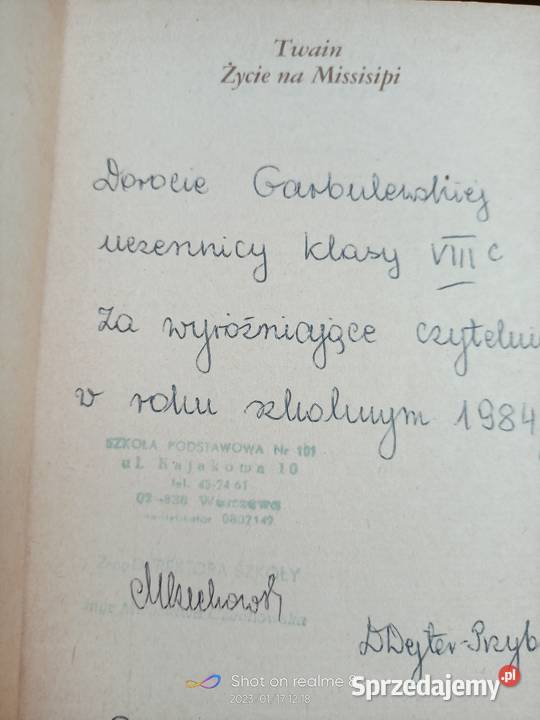 Twain
Życie na Missisipi
Dorocie Garbulewskiej
uczennicy klasy VIII c
Za wyróżniające czytelni
w roku szkolnym 1984/
SZKOŁA PODSTAWOWA Nr 101
ul. Kajakowa 10
tel. 43-24 61
02-838 Warszawa
0802149
DYREKTORA SZKOŁY
DDejter-Przyb
Shot on realme 8
2023.01.17 12:18
Sprzedajemy.pl